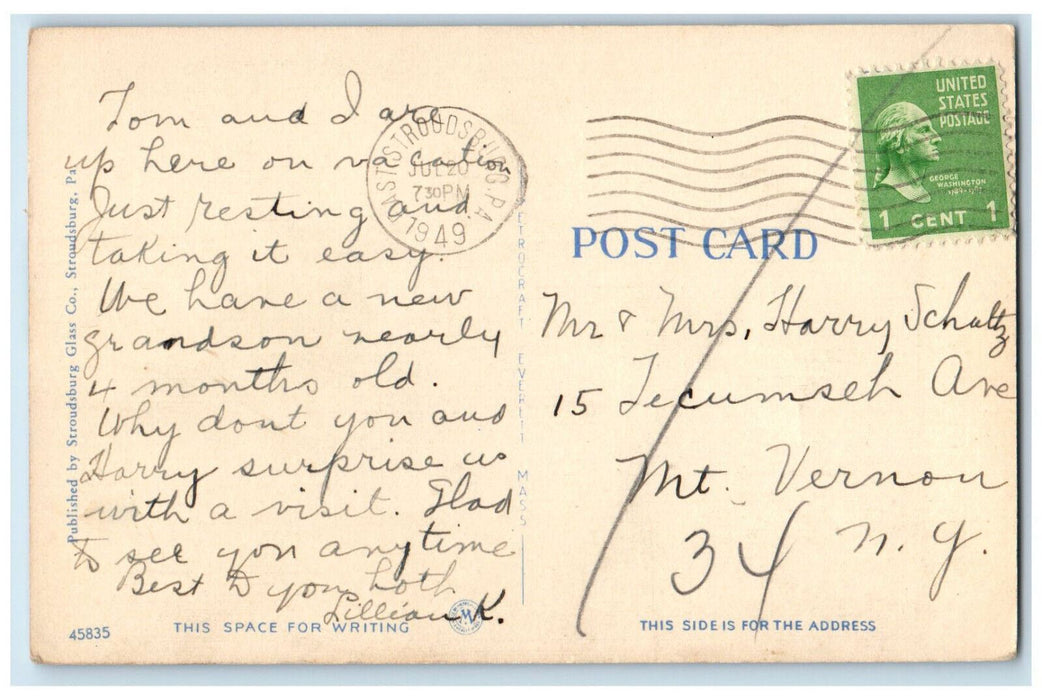 Tom and I are
up here on vacation
Just resting and
taking it easy.
We have a new
grandson nearly
4 months old.
Why dont you and
Harry surprise us
with a visit. Glad
to see you anytime
Best to you both
Lillian K.
EAST STROUDSBURG, PA.
JUL 20
7 30 PM
1949
UNITED
STATES
POSTAGE
GEORGE
WASHINGTON
1 CENT 1
POST CARD
Mr & Mrs. Harry Schultz
15 Tecumseh Ave
Mt. Vernon
34 N.Y.
Published by Stroudsburg Glass Co., Stroudsburg, Pa.
METROCRAFT EVERETT MASS
45835
THIS SPACE FOR WRITING
THIS SIDE IS FOR THE ADDRESS